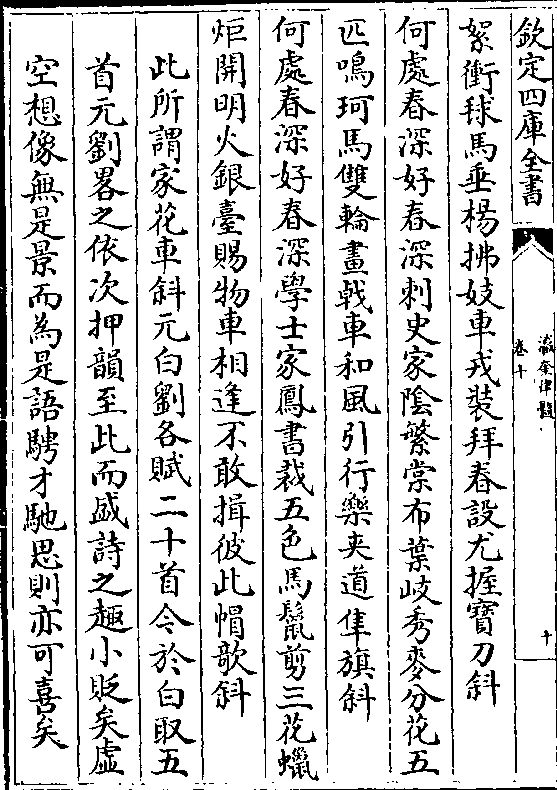 欽定四庫全書
瀛奎律髓
卷十
十
絮衝球馬垂楊拂妓車戎裝拜春設尤握寶刀斜
何處春深好春深刺史家陰繁棠布葉岐秀麥分花五
匹鳴珂馬雙輪畫戟車和風引行樂夾道隼旗斜
何處春深好春深學士家鳳書裁五色馬鬛剪三花蠟
炬開明火銀臺賜物車相逢不敢揖彼此帽歌斜
此所謂家花車斜元白劉各賦二十首今於白取五
首元劉畧之依次押韻至此而盛詩之趣小貶矣虛
空想像無是景而為是語騁才馳思則亦可喜矣